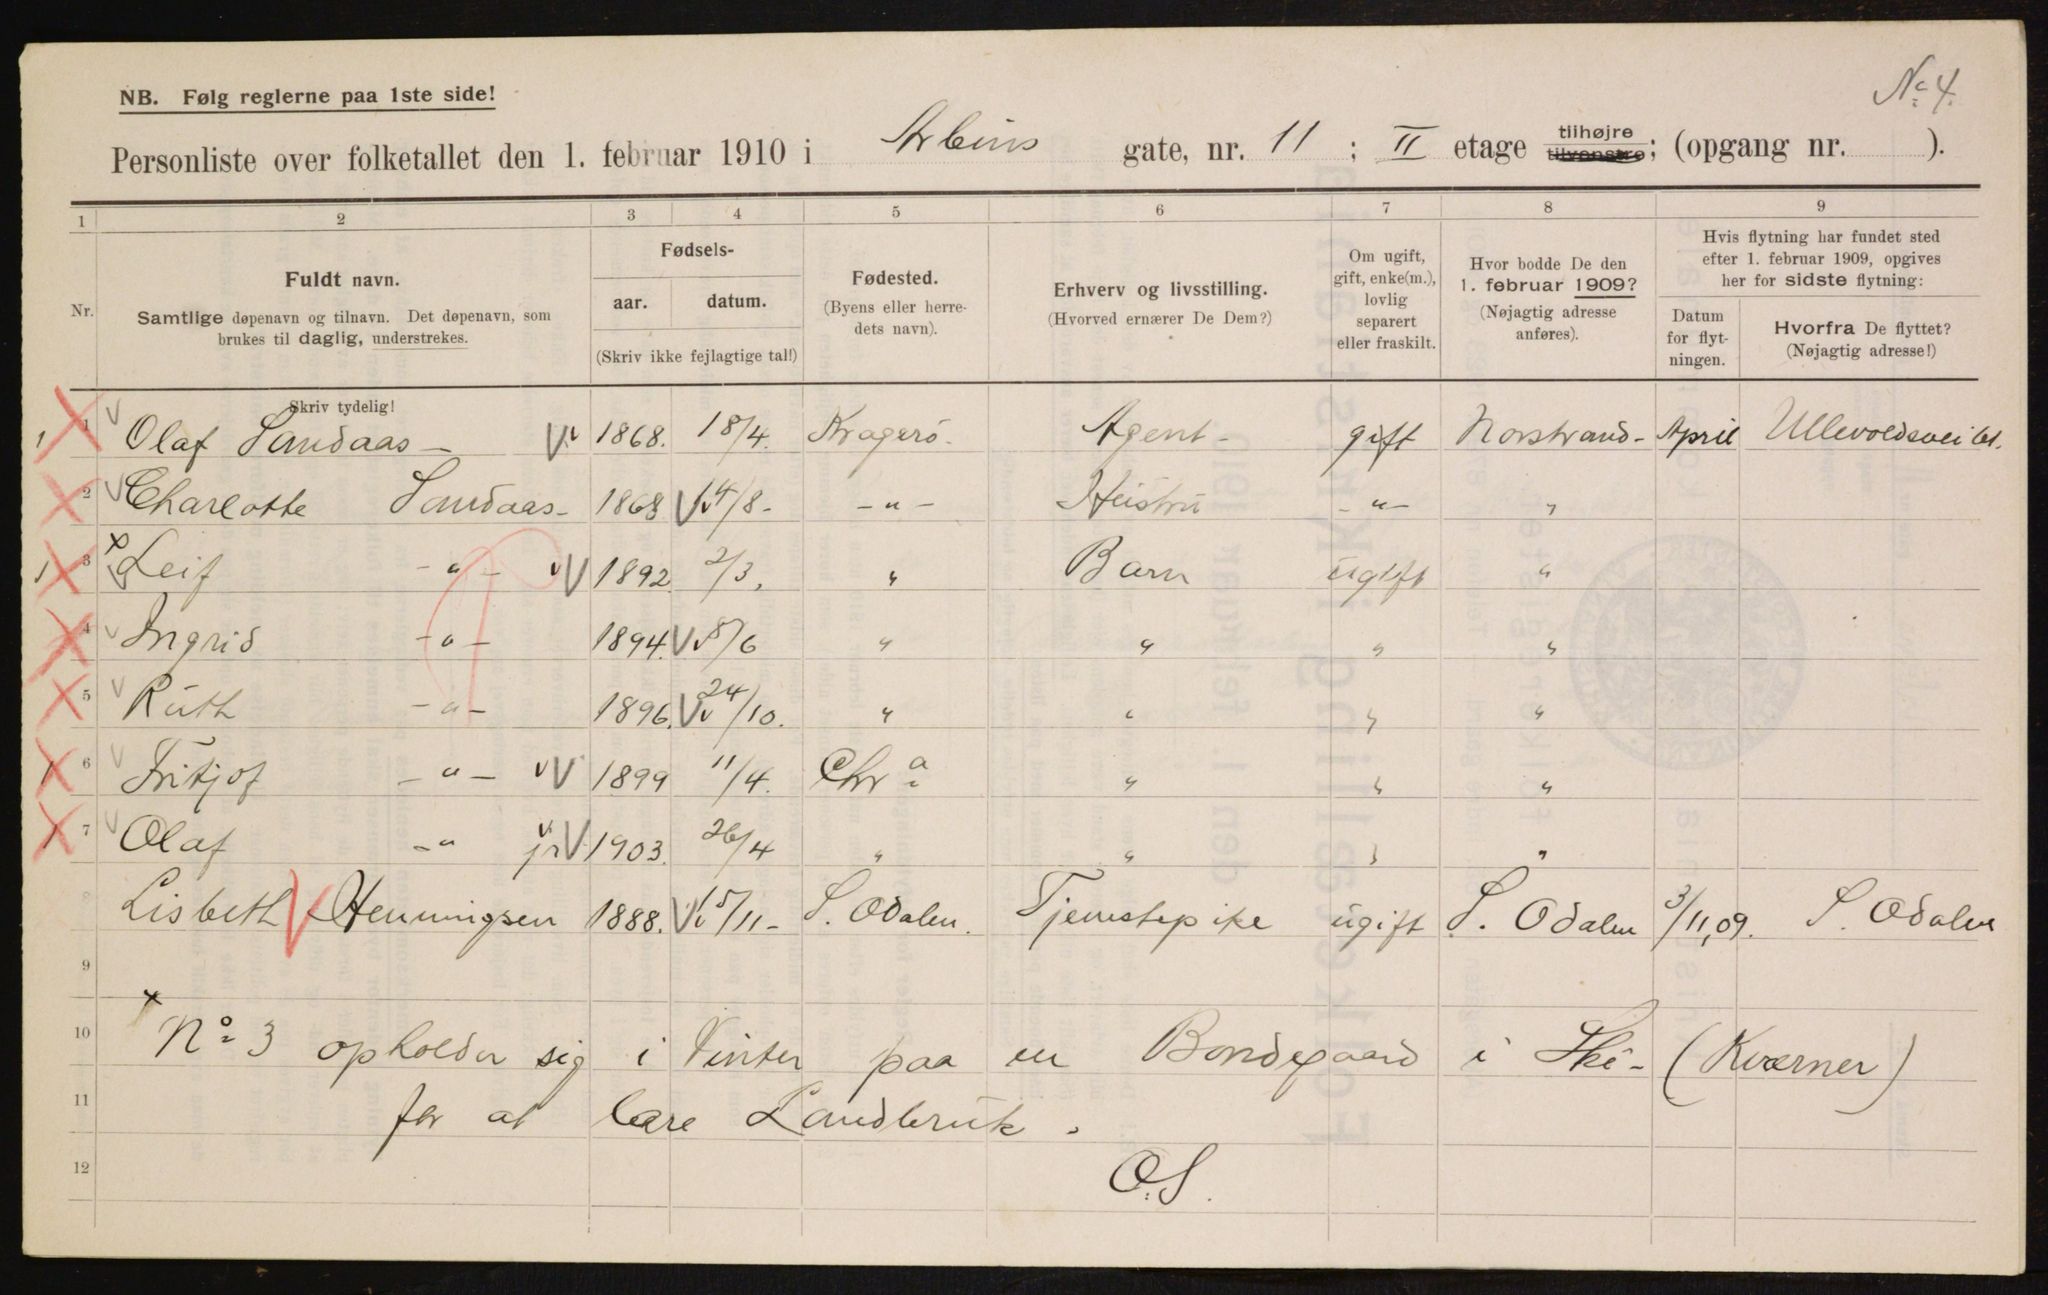 No 4.
NB. Følg reglerne paa 1ste side!
Personliste over folketallet den 1. februar 1910 i Arbins gate, nr. 11 ; II etage tilhøjre tilvenstre; (opgang nr. ).
1 2 3 4 5 6 7 8 9
Nr.
Fuldt navn.
Samtlige døpenavn og tilnavn. Det døpenavn, som
brukes til daglig, understrekes.
Skriv tydelig!
Fødsels-
aar. datum.
(Skriv ikke fejlagtige tal!)
Fødested.
(Byens eller herre-
dets navn).
Erhverv og livsstilling.
(Hvorved ernærer De Dem?)
Om ugift,
gift, enke(m.),
lovlig
separert
eller fraskilt.
Hvor bodde De den
1. februar 1909?
(Nøjagtig adresse
anføres).
Hvis flytning har fundet sted
efter 1. februar 1909, opgives
her for sidste flytning:
Datum
for flyt-
ningen.
Hvorfra De flyttet?
(Nøjagtig adresse!)
1 Olaf Sandaas - 1868. 18/4. Kragerö - Agent - gift Norstrand - April Ullevoldsvei 61.
2 Charlotte Sandaas - 1868 14/8 - - " - Heistru - " - "
3 Leif - " - 1892 2/3. " Barn ugift "
4 Ingrid - " - 1894. 8/6 " " " "
5 Ruth - " - 1896. 24/10. " " " "
6 Fritjof - " - 1899 11/4. Chra " " "
7 Olaf - " jr 1903. 26/4 " " " "
8 Lisbeth Henningsen 1888. 15/11 - S. Odalen. Tjenstepike ugift S. Odalen 3/11,09. S. Odalen
9
10 x No 3 opholder sig i Vinter paa en Bondegaard i Ski - (Kværner)
11 for at lære Landbruk.
12 O.S.